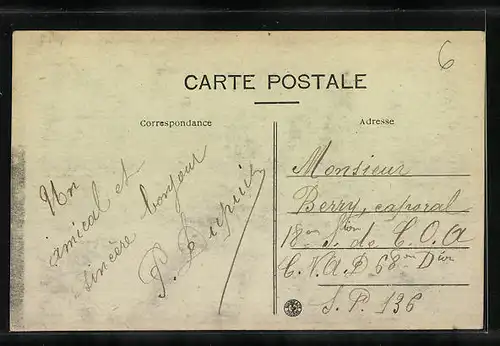 6
CARTE POSTALE
Correspondance
Adresse
Un
amical et
sincère bonjour
P. Dupuit
Monsieur
Berry, caporal
18em Son de C.O.A
C.V.A.D 68em Don
S.P. 136